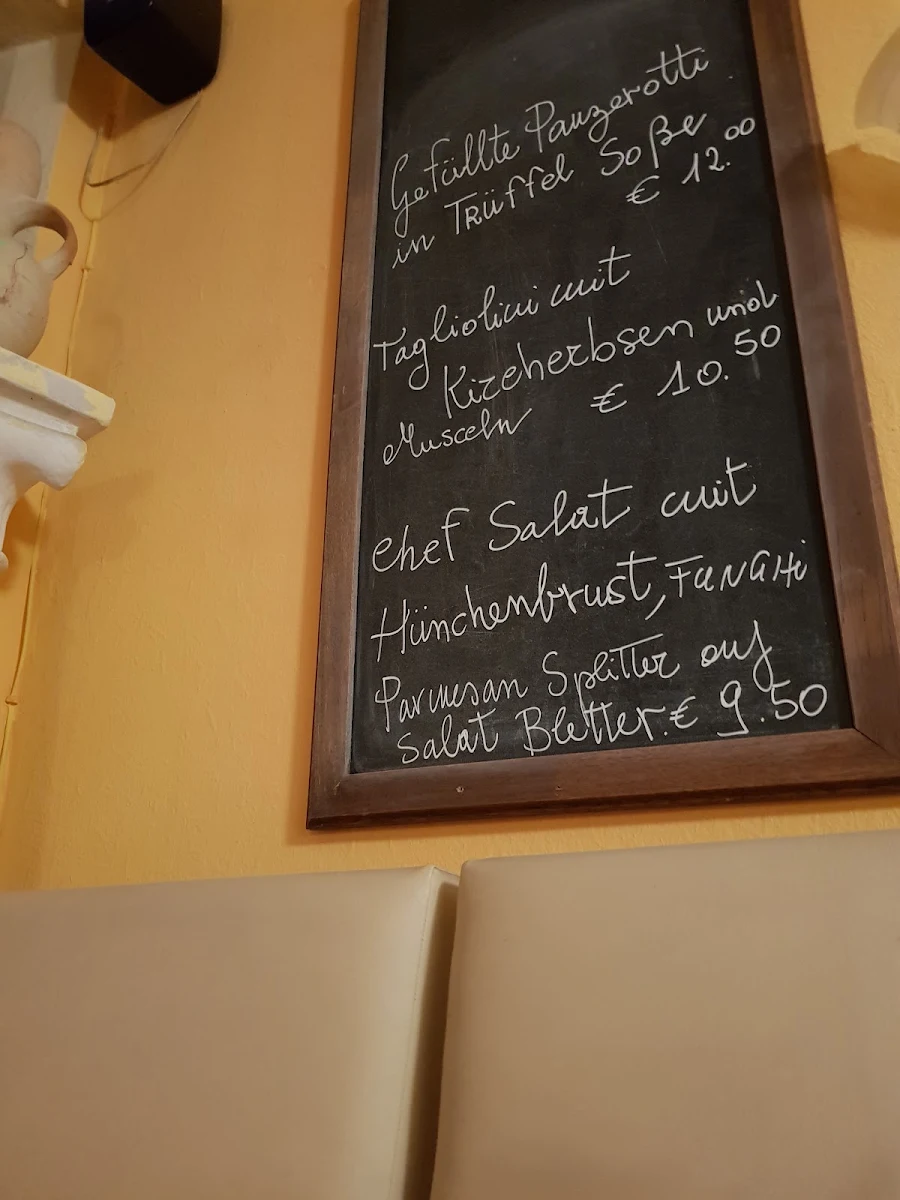 Gefüllte Panzerotti
in Trüffel Soße
€ 12.00
Tagliolini mit
Kircherbsen und
Musceln € 10.50
Chef Salat mit
Hünchenbrust, FUNGHi
Parmesan Splitter auf
Salat Bletter. € 9.50